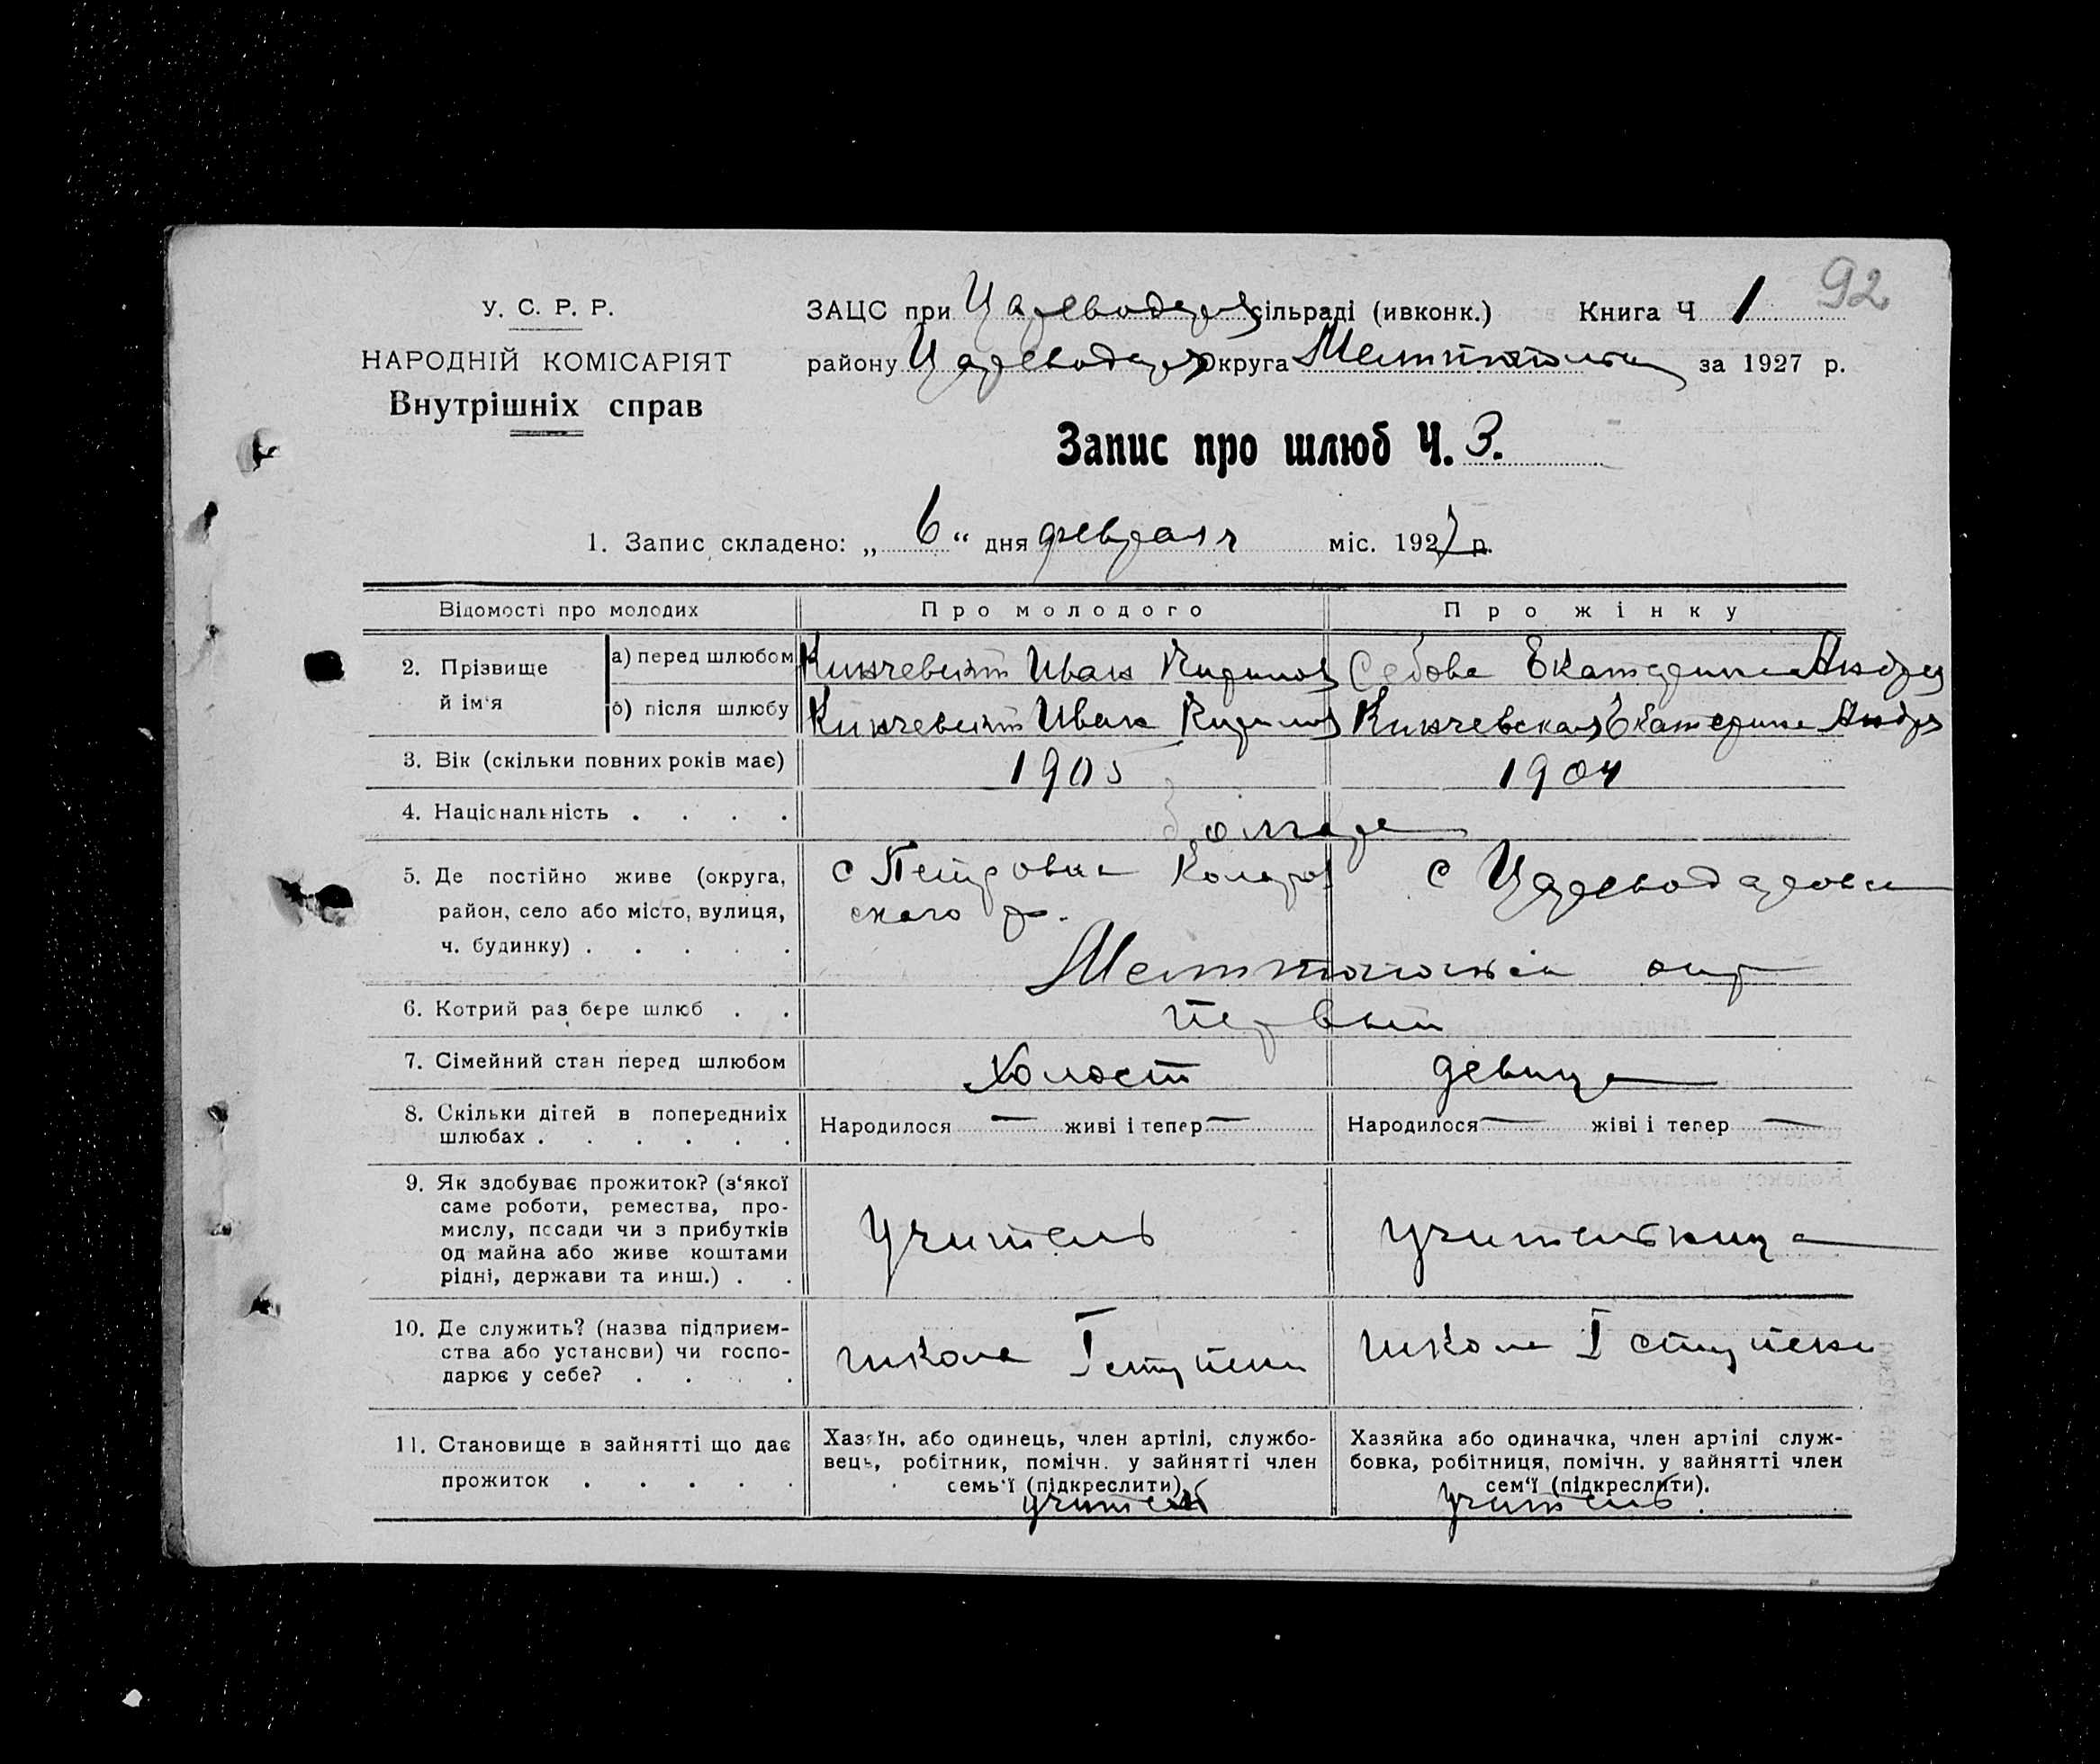 92
У. С. Р. Р.
НАРОДНІЙ КОМІСАРІЯТ
Внутрішніх справ
ЗАЦС при Цареводар сільраді (ивконк.) Книга Ч 1
району Цареводар округа за 1927 р.
Запис про шлюб Ч. 3.
1. Запис складено: „ 6 “ дня февраля міс. 1927 р.
Відомості про молодих Про молодого Про жінку
2. Прізвище й ім‘я
а) перед шлюбом Иван Кирилов Екатерина Андре
б) після шлюбу Иван Кирилов Кинчевская Екатерина Андре
3. Вік (скільки повних років має) 1905 1904
4. Національність . . . . болгаре
5. Де постійно живе (округа, с Петровка Колар с Цареводаровка
район, село або місто, вулиця, ского р.
ч. будинку) . . . . . окр
6. Котрий раз бере шлюб . . первый
7. Сімейний стан перед шлюбом Холост девица
8. Скільки дітей в попередниіх Народилося — живі і тепер — Народилося — жіві і тепер —
шлюбах . . . . . .
9. Як здобуває прожиток? (з‘якої
саме роботи, ремества, про-
мислу, посади чи з прибутків Учитель учительница
од майна або живе коштами
рідні, держави та инш.) . .
10. Де служить? (назва підприєм-
ства або установи) чи госпо- школа I ступени школа I ступени
дарює у себе? . . . .
11. Становище в зайнятті що дає
прожиток . . . . .
Хазяїн, або одинець, член артілі, службо-
вець, робітник, помічн. у зайнятті член
семь‘ї (підкреслити)
учитель
Хазяйка або одиначка, член артілі служ-
бовка, робітниця, помічн. у зайнятті член
сем‘ї (підкреслити).
учитель.